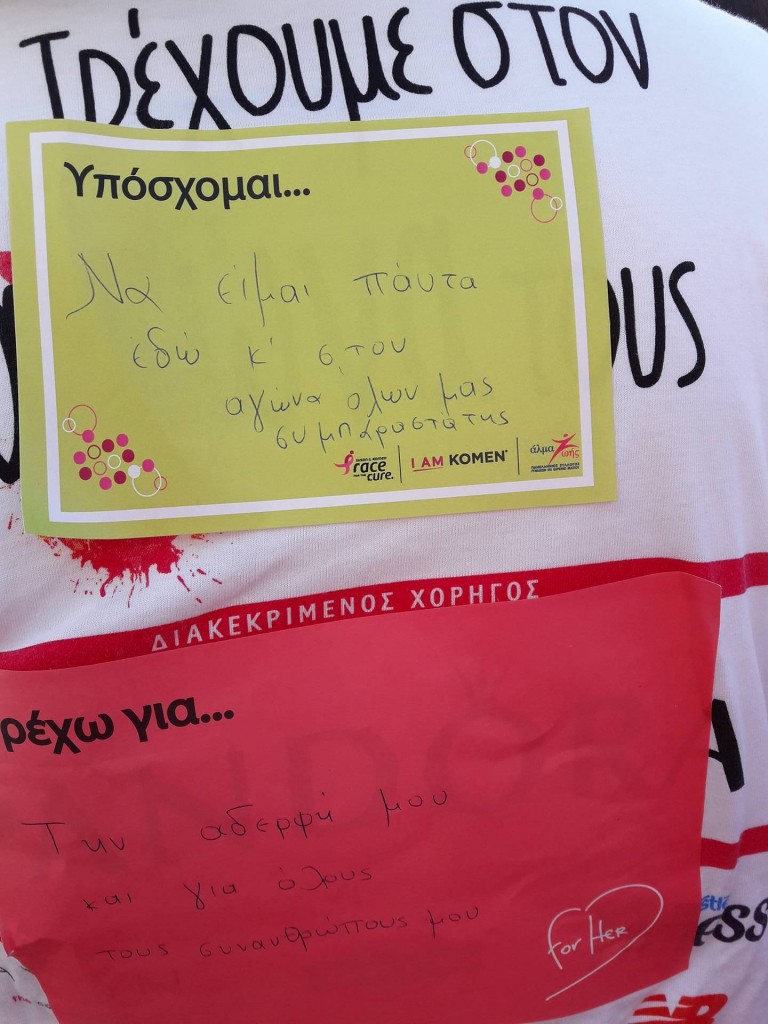 Τρέχουμε στον
Υπόσχομαι...
Να είμαι πάντα
εδώ κ' στον
αγώνα όλων μας
συμπαραστάτης
ους
race
for the
cure.
I AM KOMEN
άλμα
Ζωής
ΔΙΑΚΕΚΡΙΜΕΝΟΣ ΧΟΡΗΓΟΣ
ρέχω για...
Την αδερφή μου
και για όλους
τους συνανθρώπους μου
For Her